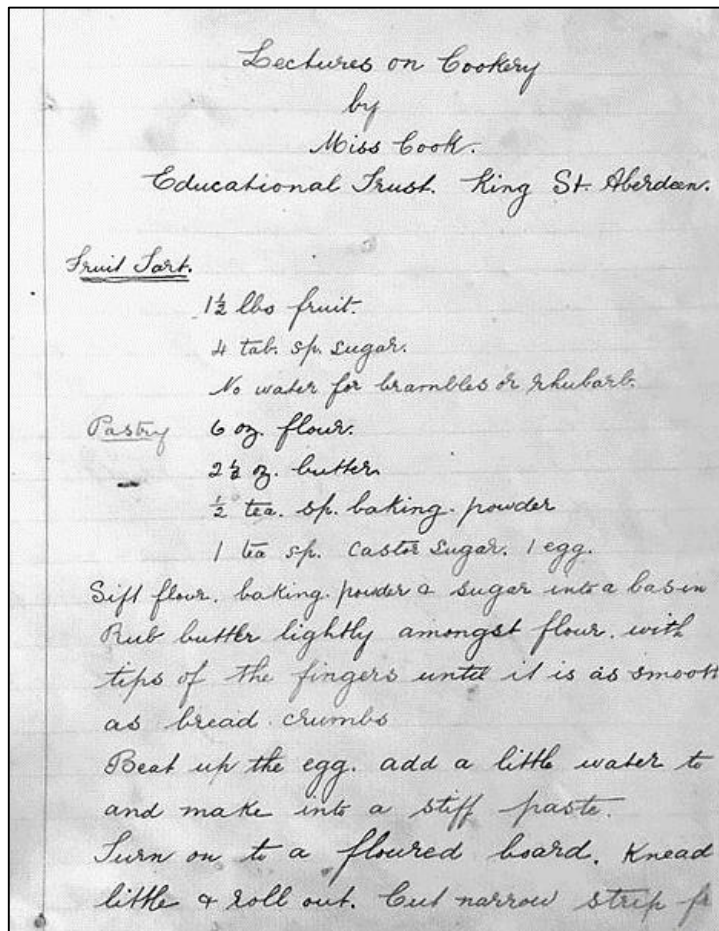 Lectures on Cookery
by
Miss Cook.
Educational Trust. King St. Aberdeen.
Fruit Tart.
1½ lbs fruit.
4 tab. sp. sugar.
No water for brambles or rhubarb.
Pastry 6 oz. flour.
2½ oz. butter
½ tea. sp. baking. powder
1 tea sp. Castor Sugar. 1 egg.
Sift flour. baking. powder & sugar into a basin
Rub butter lightly amongst flour. with
tips of the fingers until it is as smooth
as bread crumbs
Beat up the egg. add a little water to
and make into a stiff paste.
Turn on to a floured board. Knead
little & roll out. Cut narrow strip